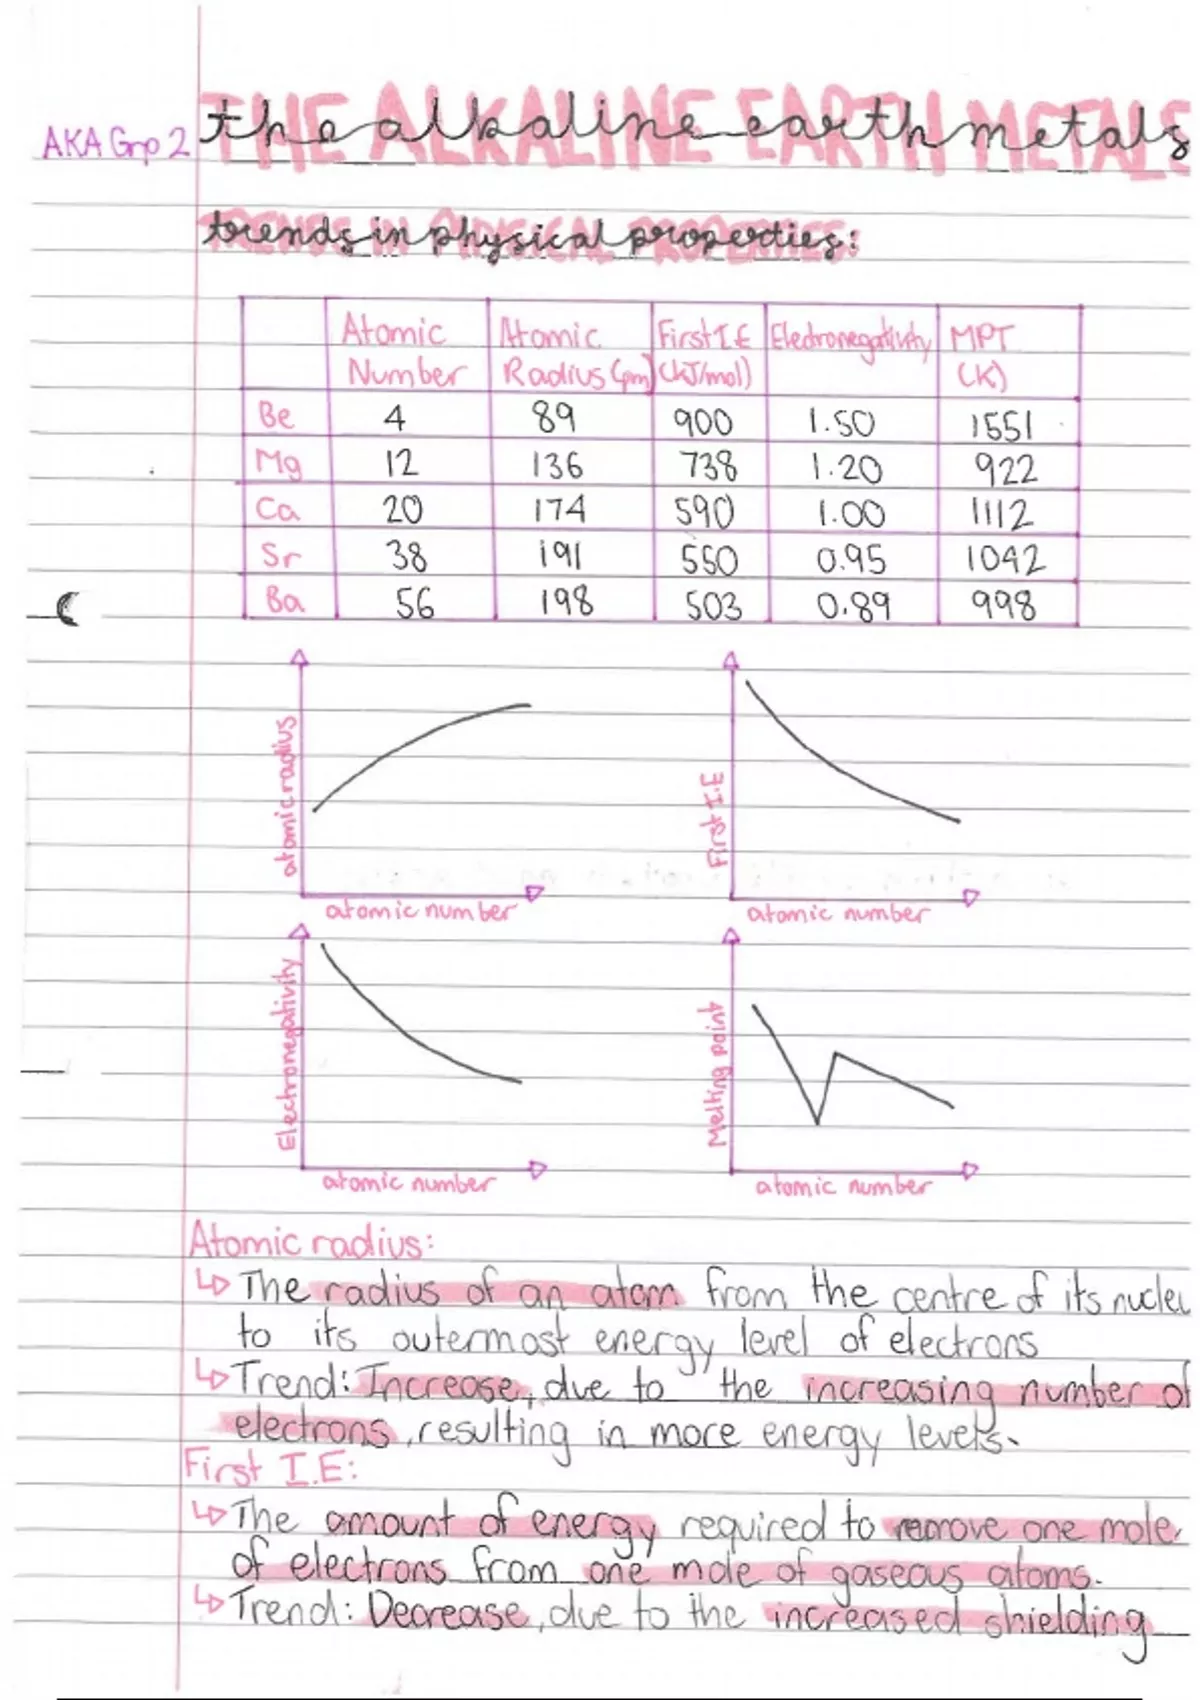 AKA Grp 2
the alkaline earth metals
trends in physical properties:
Atomic Number Atomic Radius (pm) First I.E (kJ/mol) Electronegativity MPT (K)
Be 4 89 900 1.50 1551
Mg 12 136 738 1.20 922
Ca 20 174 590 1.00 1112
Sr 38 191 550 0.95 1042
Ba 56 198 503 0.89 998
atomic radius
atomic number
First I.E
atomic number
Electronegativity
atomic number
Melting point
atomic number
Atomic radius:
↳ The radius of an atom from the centre of its nuclei
to its outermost energy level of electrons
↳ Trend: Increase, due to the increasing number of
electrons, resulting in more energy levels.
First I.E:
↳ The amount of energy required to remove one mole
of electrons from one mole of gaseous atoms.
↳ Trend: Decrease, due to the increased shielding